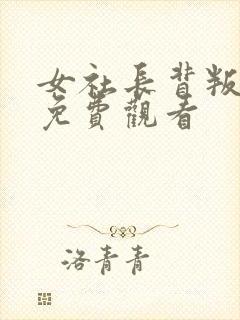 女社長背叛
免費觀看
洛青青